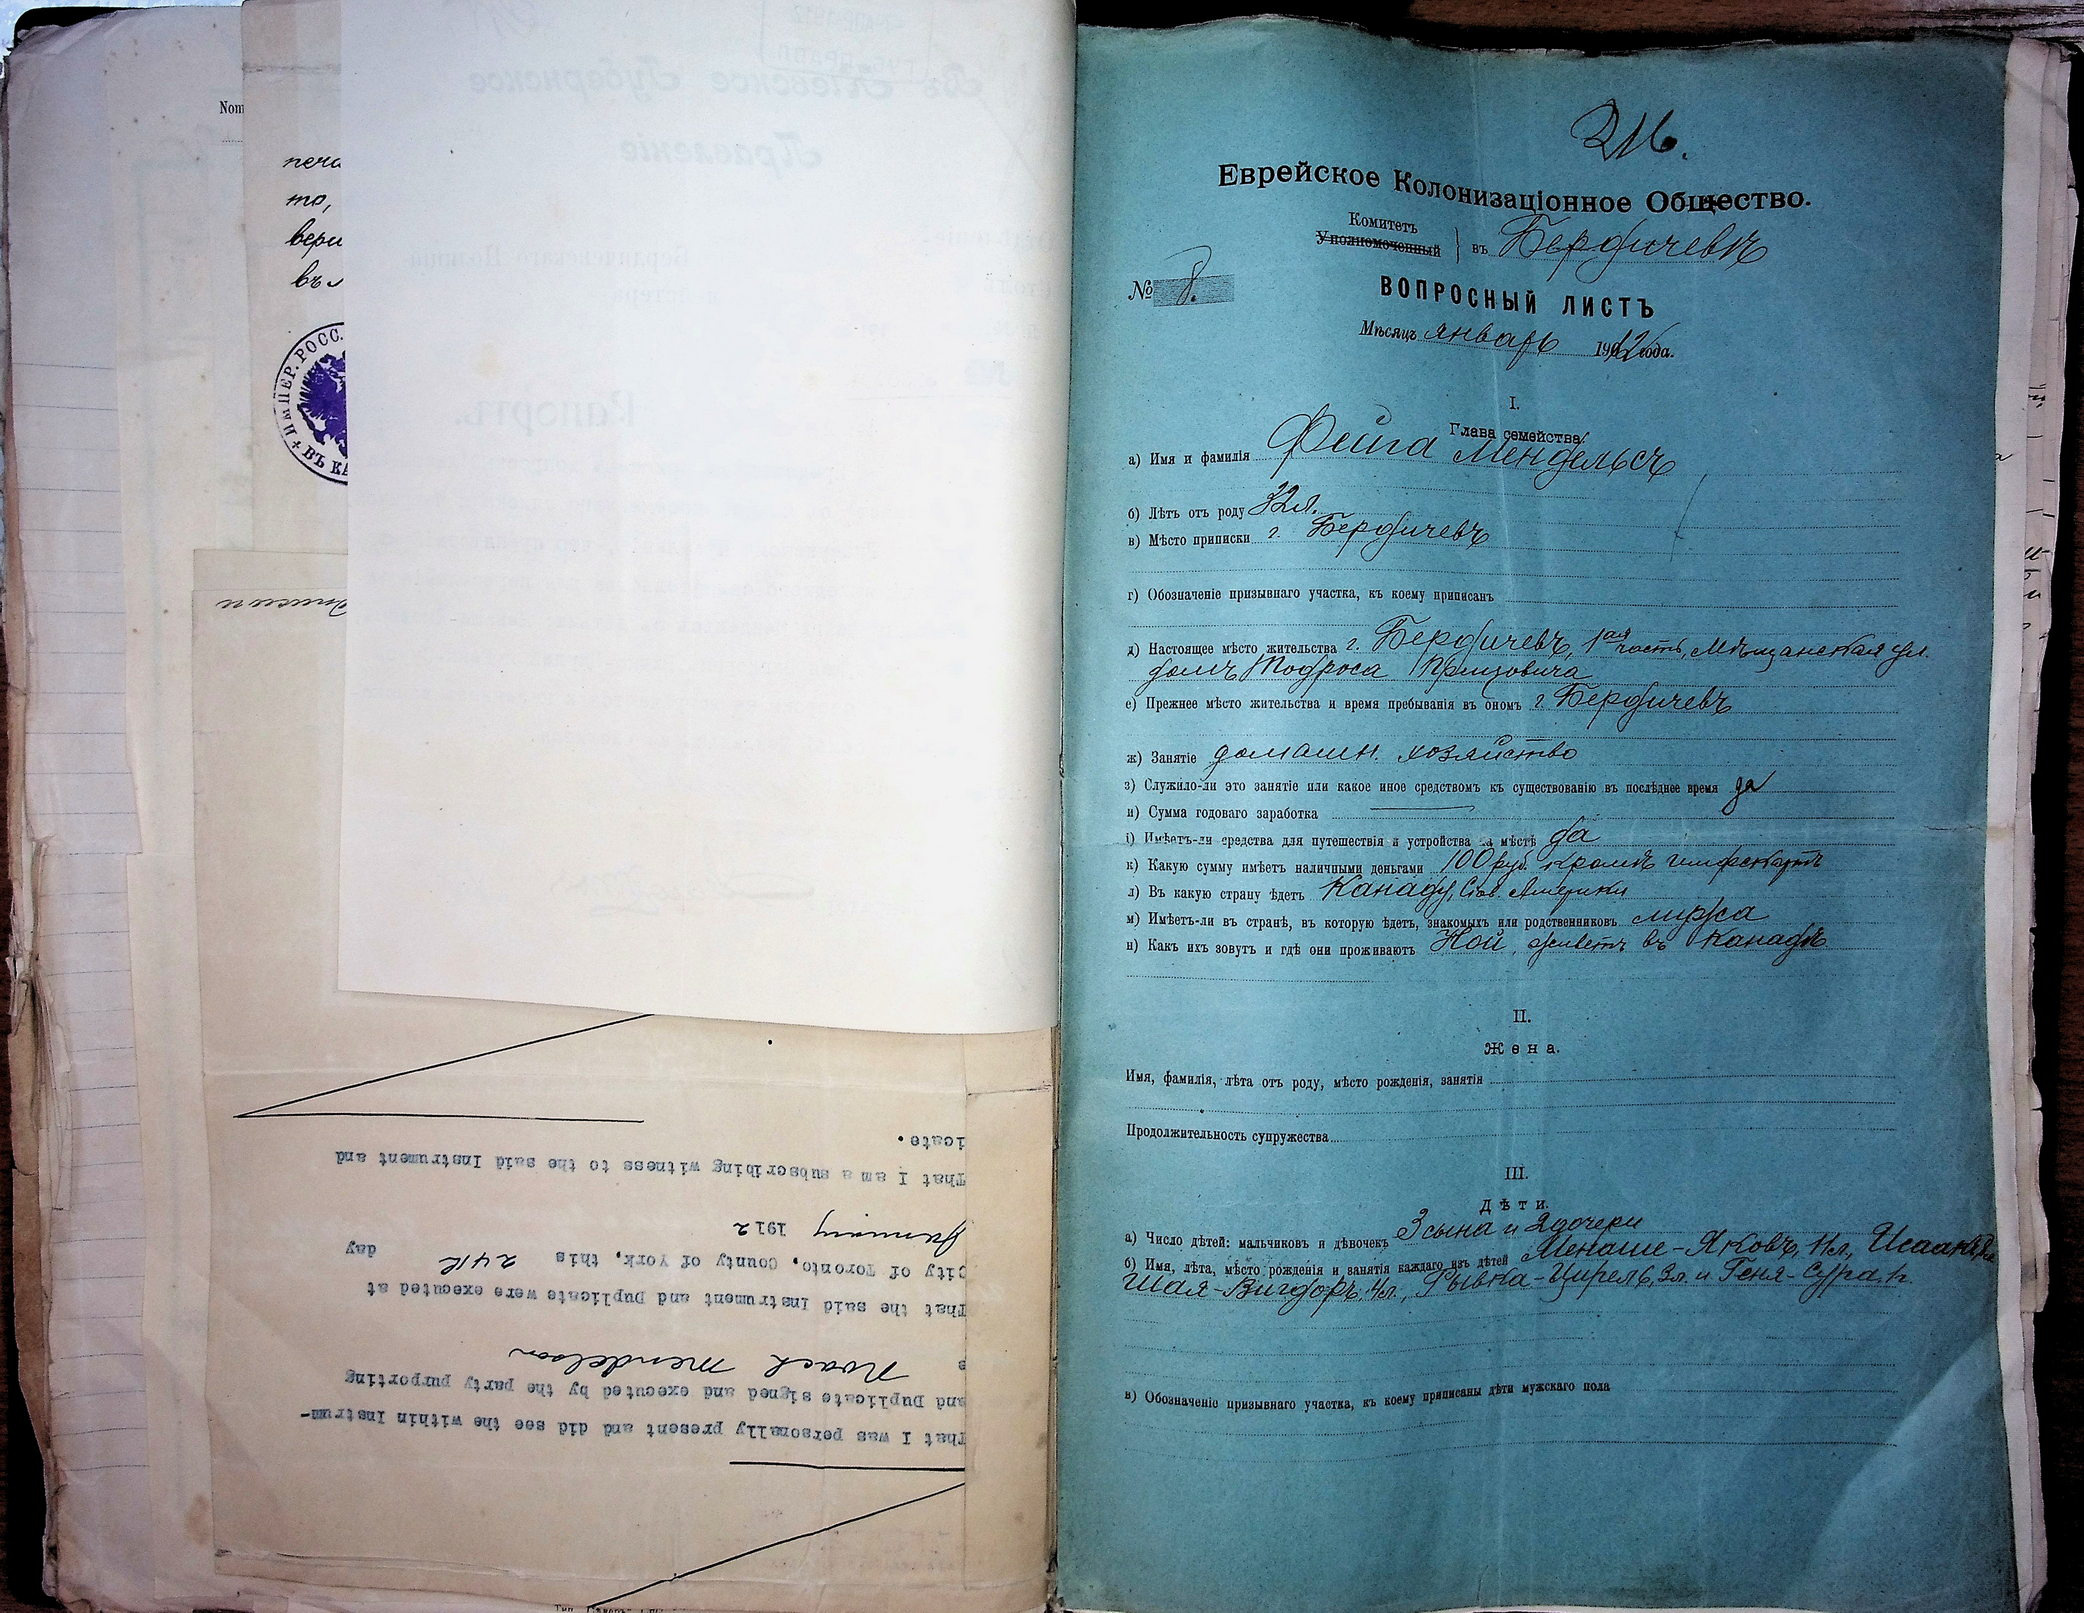 Nom
печа
то,
вери
въ л
+ ИМПЕР. РОСС.
ВЪ КА
Въ Кіевское Губернское
Правленіе
Рапортъ.
icate.
That I am a subscribing witness to the said Instrument and
January 1912
City of Toronto, County of York, this 24th day
That the said Instrument and Duplicate were executed at
e Noach Mendelson
and Duplicate signed and executed by the party purporting
That I was personally present and did see the within Instrum-
216.
Еврейское Колонизаціонное Общество.
Комитетъ
Уполномоченный } въ Бердичевѣ
№ 8.
ВОПРОСНЫЙ ЛИСТЪ
Мѣсяцъ январь 1912 года.
I.
Глава семейства.
а) Имя и фамилія Фейга Мендельсъ
б) Лѣтъ отъ роду 32 л.
в) Мѣсто приписки г. Бердичевъ
г) Обозначеніе призывнаго участка, къ коему приписанъ
д) Настоящее мѣсто жительства г. Бердичевъ, 1ая часть, Мѣщанская ул.
домъ Тодроса
е) Прежнее мѣсто жительства и время пребыванія въ ономъ г. Бердичевъ
ж) Занятіе домашн. хозяйство
з) Служило-ли это занятіе или какое иное средствомъ къ существованію въ послѣднее время да
и) Сумма годоваго заработка
і) Имѣетъ-ли средства для путешествія и устройства на мѣстѣ да
к) Какую сумму имѣетъ наличными деньгами 100 руб. кромѣ шифскарты
л) Въ какую страну ѣдетъ Канаду, Сѣв. Америки
м) Имѣетъ-ли въ странѣ, въ которую ѣдетъ, знакомыхъ или родственниковъ мужа
н) Какъ ихъ зовутъ и гдѣ они проживаютъ Ной, живетъ въ Канадѣ
II.
Жена.
Имя, фамилія, лѣта отъ роду, мѣсто рожденія, занятія
Продолжительность супружества
III.
Дѣти.
а) Число дѣтей: мальчиковъ и дѣвочекъ 3 сына и 2 дочери
б) Имя, лѣта, мѣсто рожденія и занятія каждаго изъ дѣтей Менаше-Яковъ, 11 л., Исаакъ,
Шая-Вигдоръ, 4 л., Рывка-Цирель, 3 л. и Геня-Сура, 1 г.
в) Обозначеніе призывнаго участка, къ коему приписаны дѣти мужскаго пола